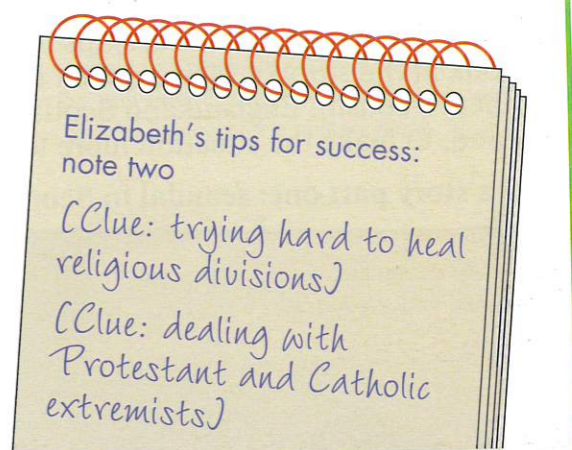 Elizabeth's tips for success:
note two
(Clue: trying hard to heal
religious divisions)
(Clue: dealing with
Protestant and Catholic
extremists)